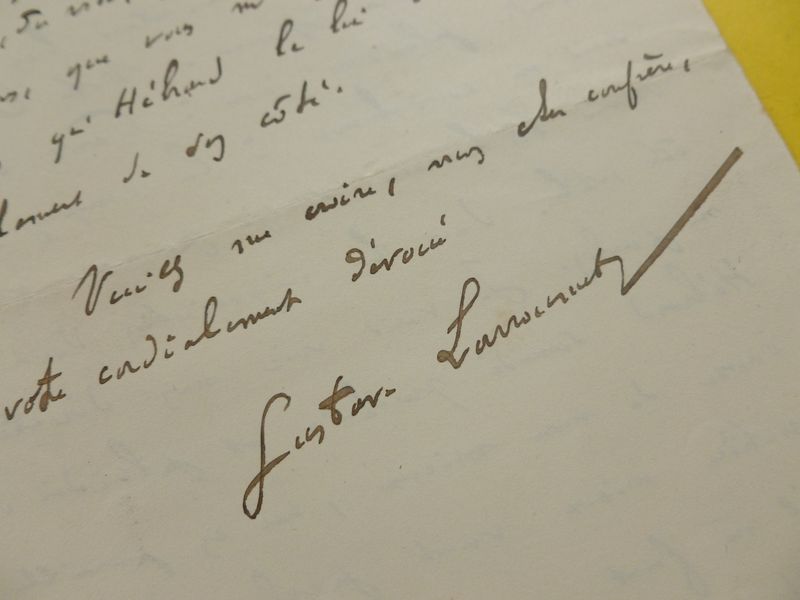 que vous me
qu'Hébrard le lui
de son côté.
Veuillez me croire, mon cher confrère,
votre cordialement dévoué
Gustave Larroumet